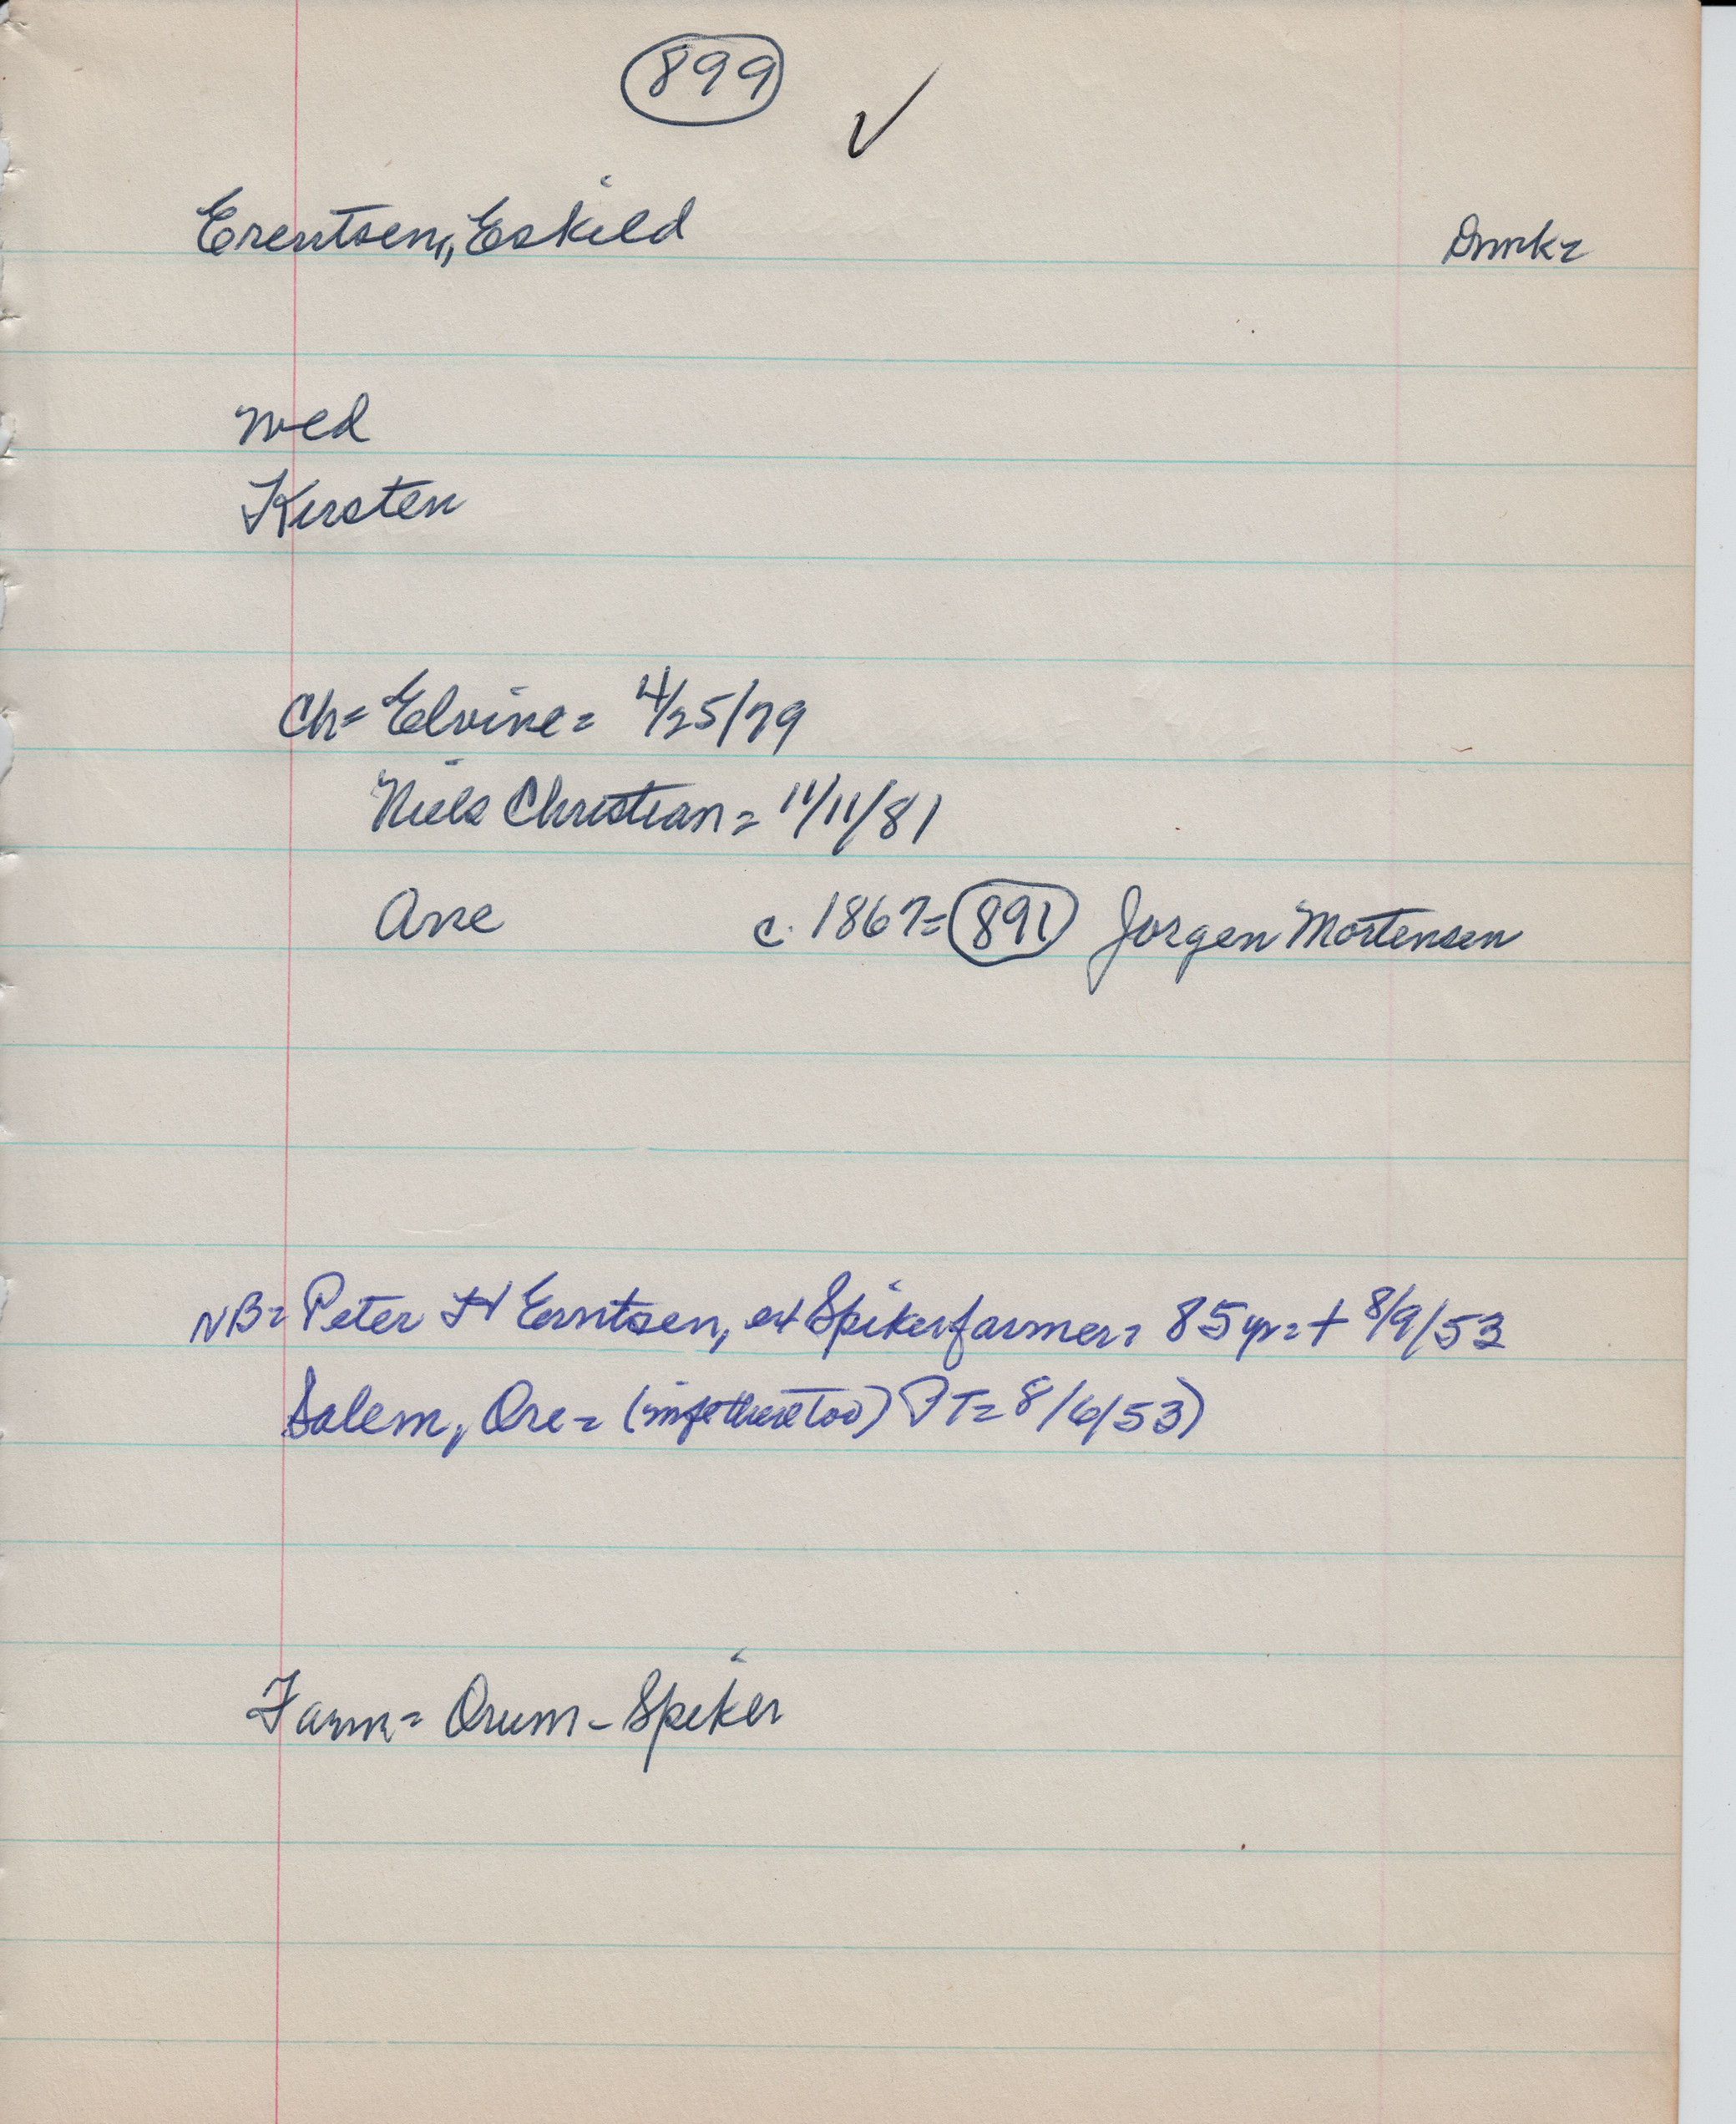 899 ✓
Erentsen, Eskild Dnmk=
wed
Kirsten
Ch= Elvine= 4/25/79
Niels Christian= 11/11/81
Ane c. 1867= 891 Jorgen Mortensen
NB= Peter H Erntsen, ex Spiker farmer= 85 yr= + 8/9/53
Salem, Ore= (info there too) PT= 8/6/53)
Farm= Orum - Spiker